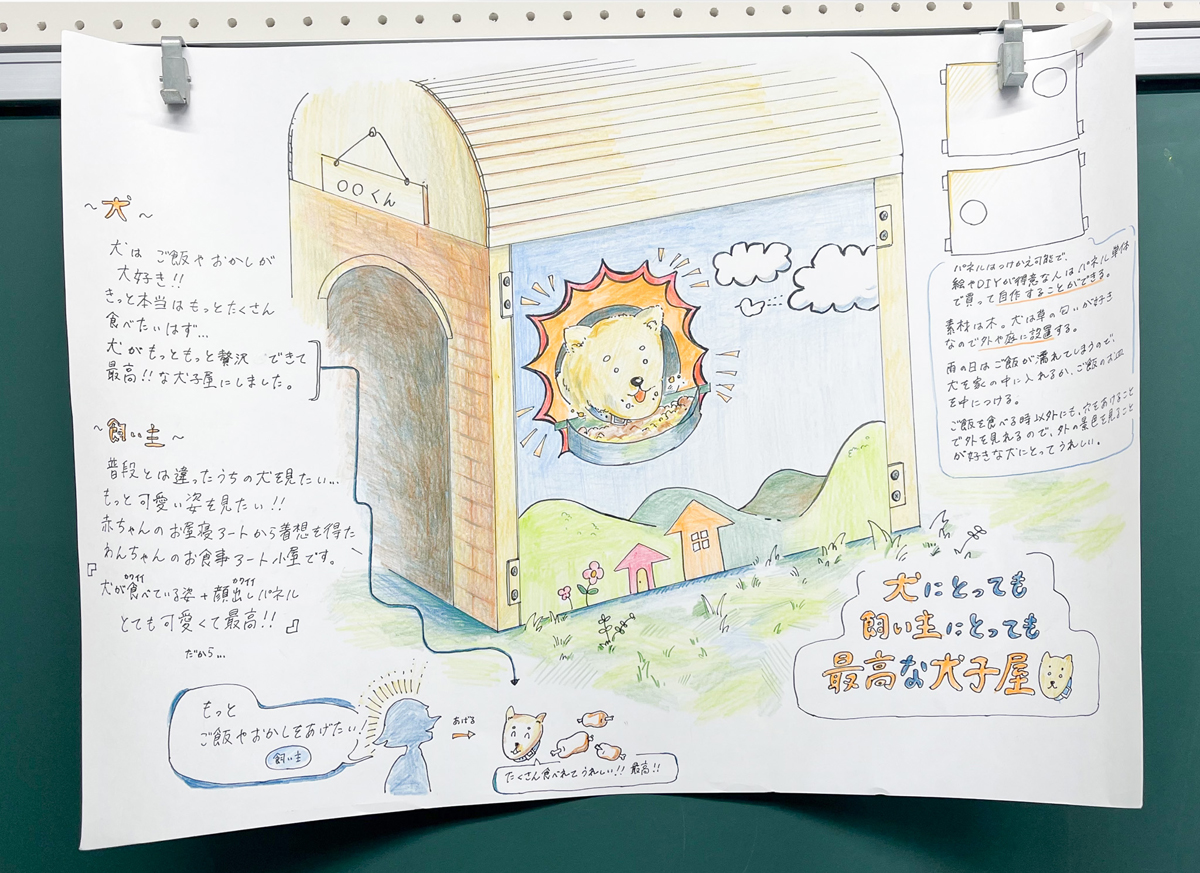 〇〇くん
～犬～
犬は ご飯やおかしが
大好き!!
きっと本当はもっとたくさん
食べたいはず…
犬がもっともっと贅沢 できて
最高!!な犬子屋にしました。
～飼い主～
普段とは違ったうちの犬を見たい…
もっと可愛い姿を見たい!!
赤ちゃんのお昼寝アートから着想を得た
わんちゃんのお食事アート小屋です。
『犬が食べている姿+顔出しパネル
カワイイ カワイイ
とても可愛くて最高!!』
だから…
もっと
ご飯やおかしをあげたい!
飼い主
あげる
たくさん食べれてうれしい!! 最高!!
パネルはつけかえ可能で、
絵やDIYが得意な人はパネル単体
で買って自作することができる。
素材は木。犬は草の匂いが好き
なので外や庭に設置する。
雨の日はご飯が濡れてしまうので、
犬を家の中に入れるか、ご飯のお皿
を中につける。
ご飯を食べる時以外にも、穴をあけること
で外を見れるので、外の景色を見ること
が好きな犬にとってうれしい。
犬にとっても
飼い主にとっても
最高な犬子屋